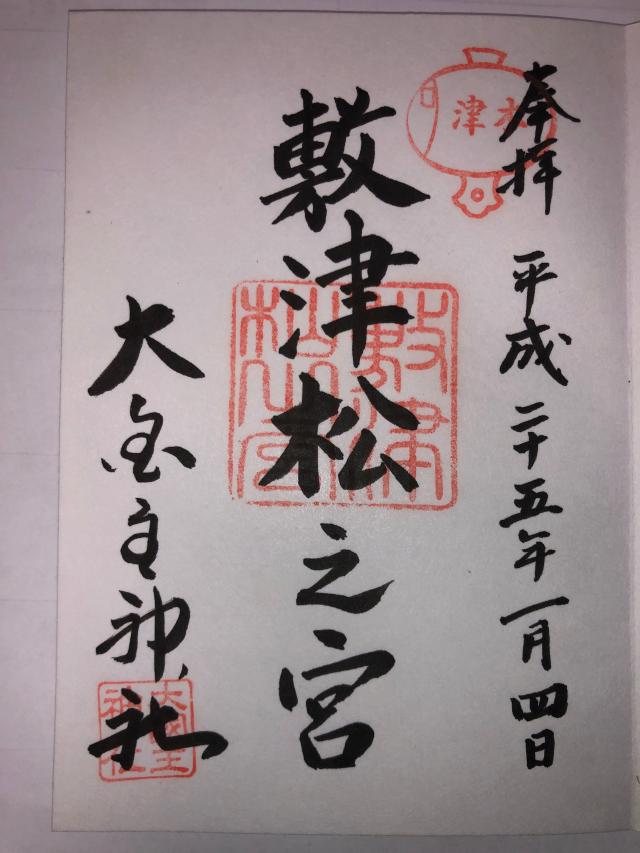 奉拝 平成二十五年一月四日
木津
敷津松之宮
敷津
松之宮
大国主神社
大國主
神社